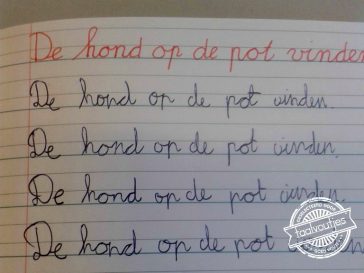 De hond op de pot vinden
De hond op de pot vinden.
De hond op de pot vinden.
De hond op de pot vinden.
De hond op de pot
taalvoutjes